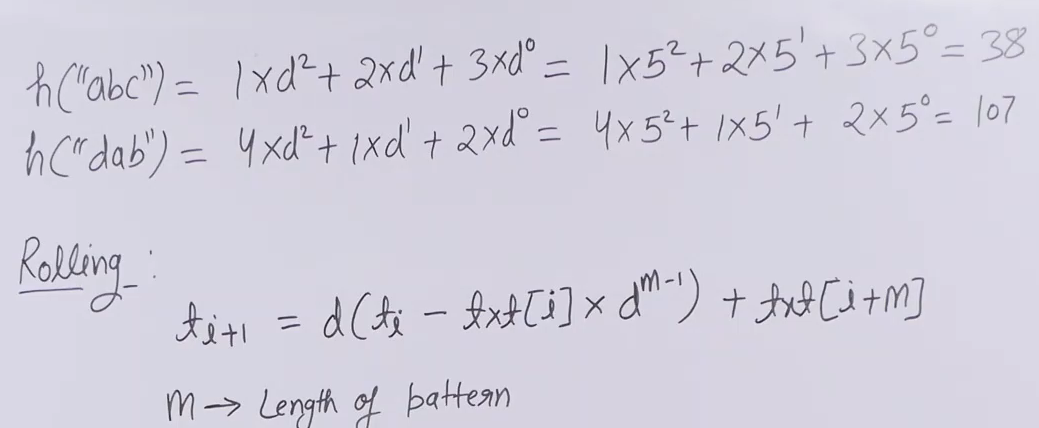 h("abc") = 1×d²+ 2×d¹ + 3×d⁰ = 1×5²+2×5¹+3×5⁰= 38
h("dab") = 4×d²+ 1×d¹ + 2×d⁰ = 4×5²+ 1×5¹ + 2×5⁰= 107
Rolling :
tᵢ₊₁ = d(tᵢ − txt[i] × dᵐ⁻¹) + txt[i+m]
m → Length of pattern